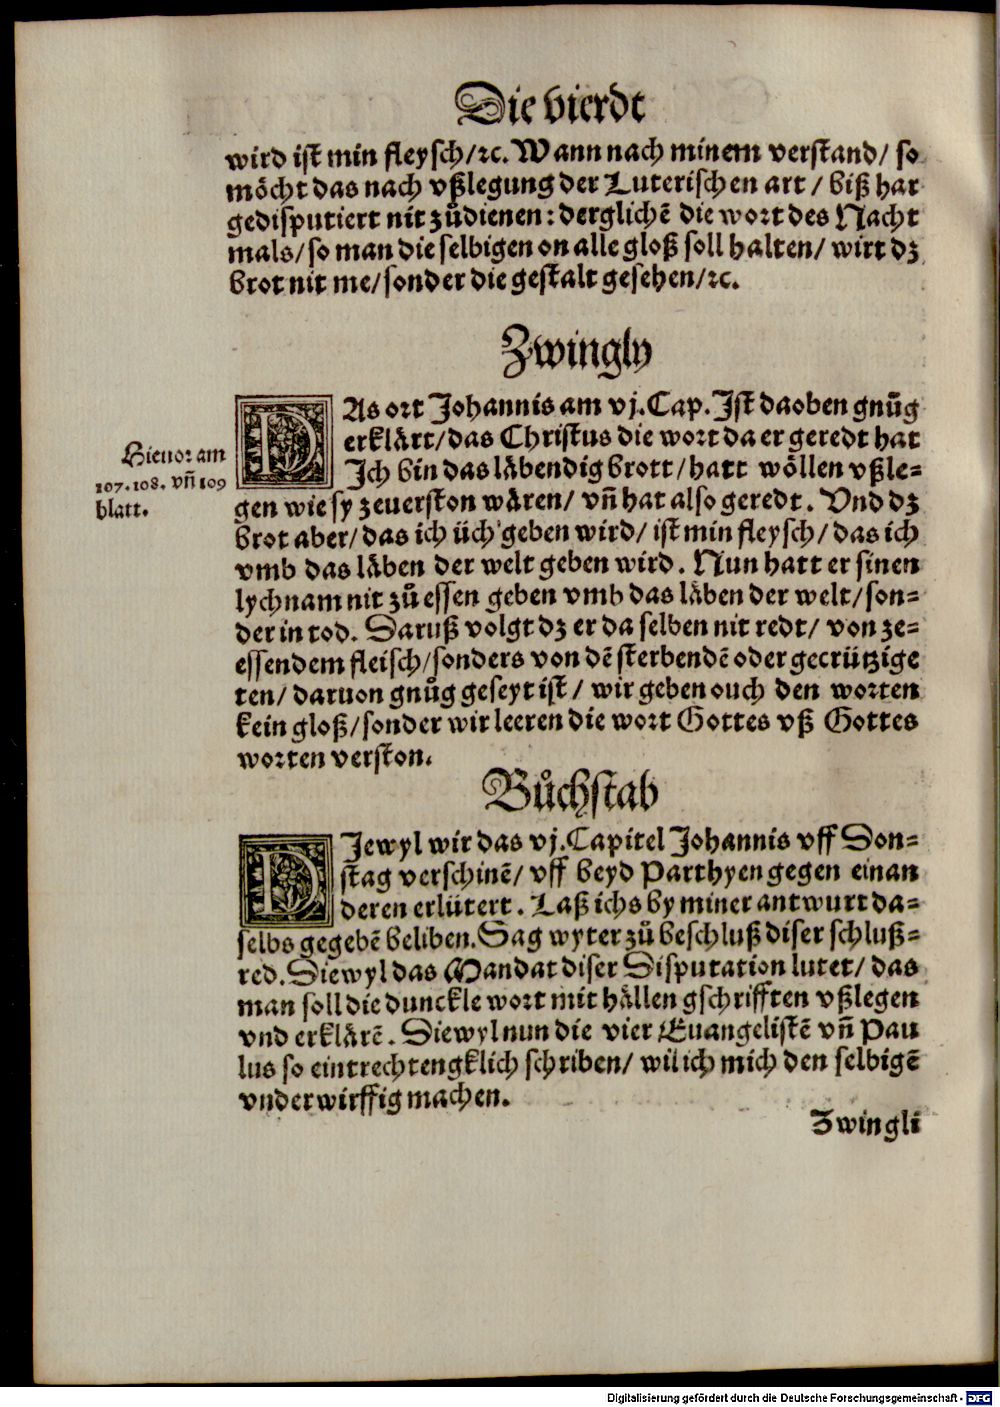 Die vierdt
wird ist min fleysch/ꝛc. Wann nach minem verstand/ so
möcht das nach vßlegung der Luterischen art / biß har
gedisputiert nit zů dienen: derglichē die wort des Nacht
mals/ so man die selbigen on alle gloß soll halten/ wirt dz
brot nit me/ sonder die gestalt gesehen/ꝛc.
Zwingly
DAs ort Johannis am vj. Cap. Ist daoben gnůg
erklärt/ das Christus die wort da er geredt hat
Ich bin das läbendig brott/ hatt wöllen vßle-
gen wie sy zeuerston wären/ vn̄ hat also geredt. Vnd dz
brot aber/ das ich üch geben wird/ ist min fleysch/ das ich
vmb das läben der welt geben wird. Nun hatt er sinen
lychnam nit zů essen geben vmb das läben der welt/ son-
der in tod. Daruß volgt dz er da selben nit redt/ von ze-
essendem fleisch/ sonders von dē sterbendē oder gecrützige
ten/ daruon gnůg geseyt ist/ wir geben ouch den worten
kein gloß/ sonder wir leeren die wort Gottes vß Gottes
worten verston.
Hieuor am
107. 108. vn̄ 109
blatt.
Bůchstab
DIewyl wir das vj. Capitel Johannis vff Son-
stag verschinē/ vff beyd Parthyen gegen einan
deren erlütert. Laß ichs by miner antwurt da-
selbs gegebē beliben. Sag wyter zů beschluß diser schluß-
red. Diewyl das Mandat diser Disputation lutet/ das
man soll die dunckle wort mit hällen gschrifften vßlegen
vnd erklärē. Diewyl nun die vier Euangelistē vn̄ Pau
lus so eintrechtengklich schriben/ wil ich mich den selbigē
vnderwirffig machen.
Zwingli
Digitalisierung gefördert durch die Deutsche Forschungsgemeinschaft - DFG